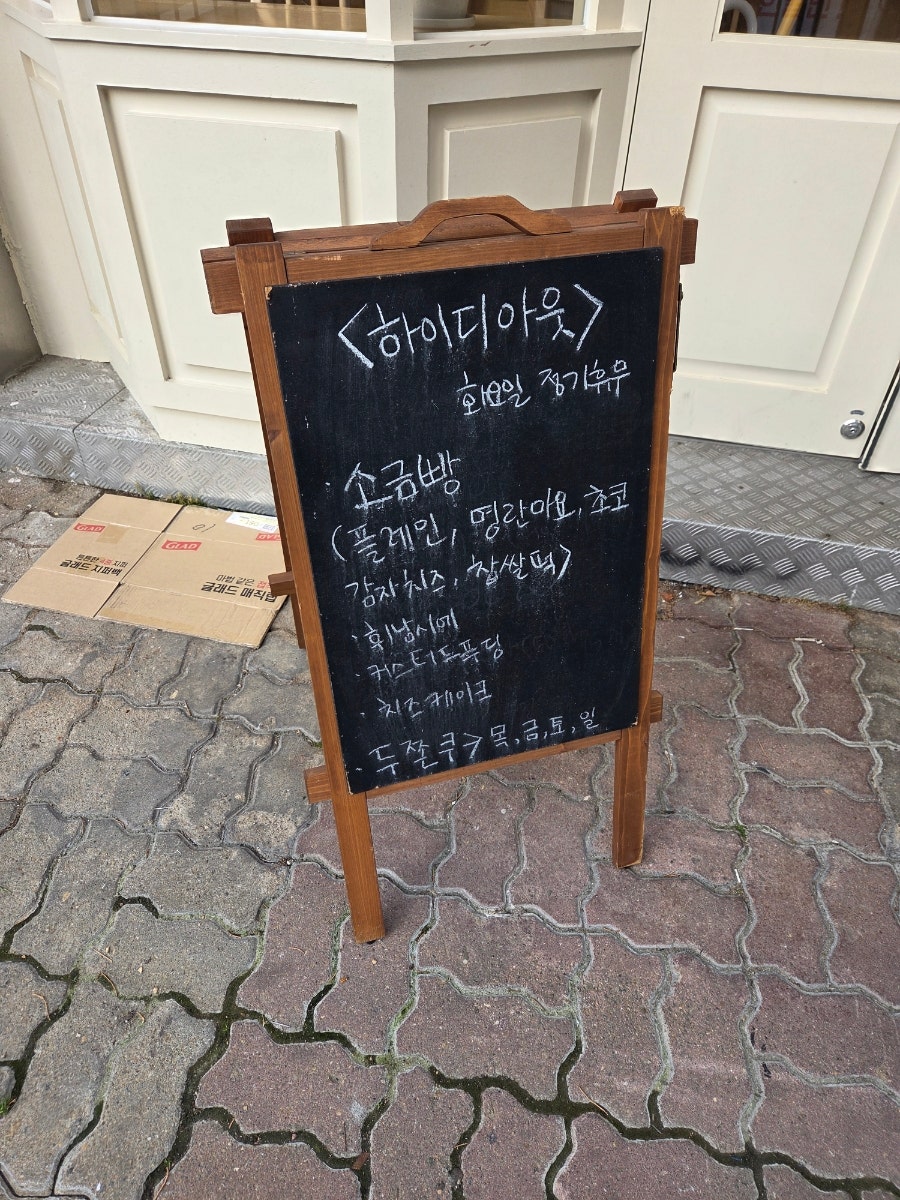 <하이디아웃>
화요일 정기휴유
· 소금빵
(플레인, 명란마요, 초코
감자치즈, 찹쌀떡)
· 휘낭시에
· 커스터드푸딩
· 치즈케이크
· 두쫀쿠> 목, 금, 토, 일
GLAD
튼튼한 지퍼
글래드 지퍼백
GLAD
마법 같은
글래드 매직랩
GLAD